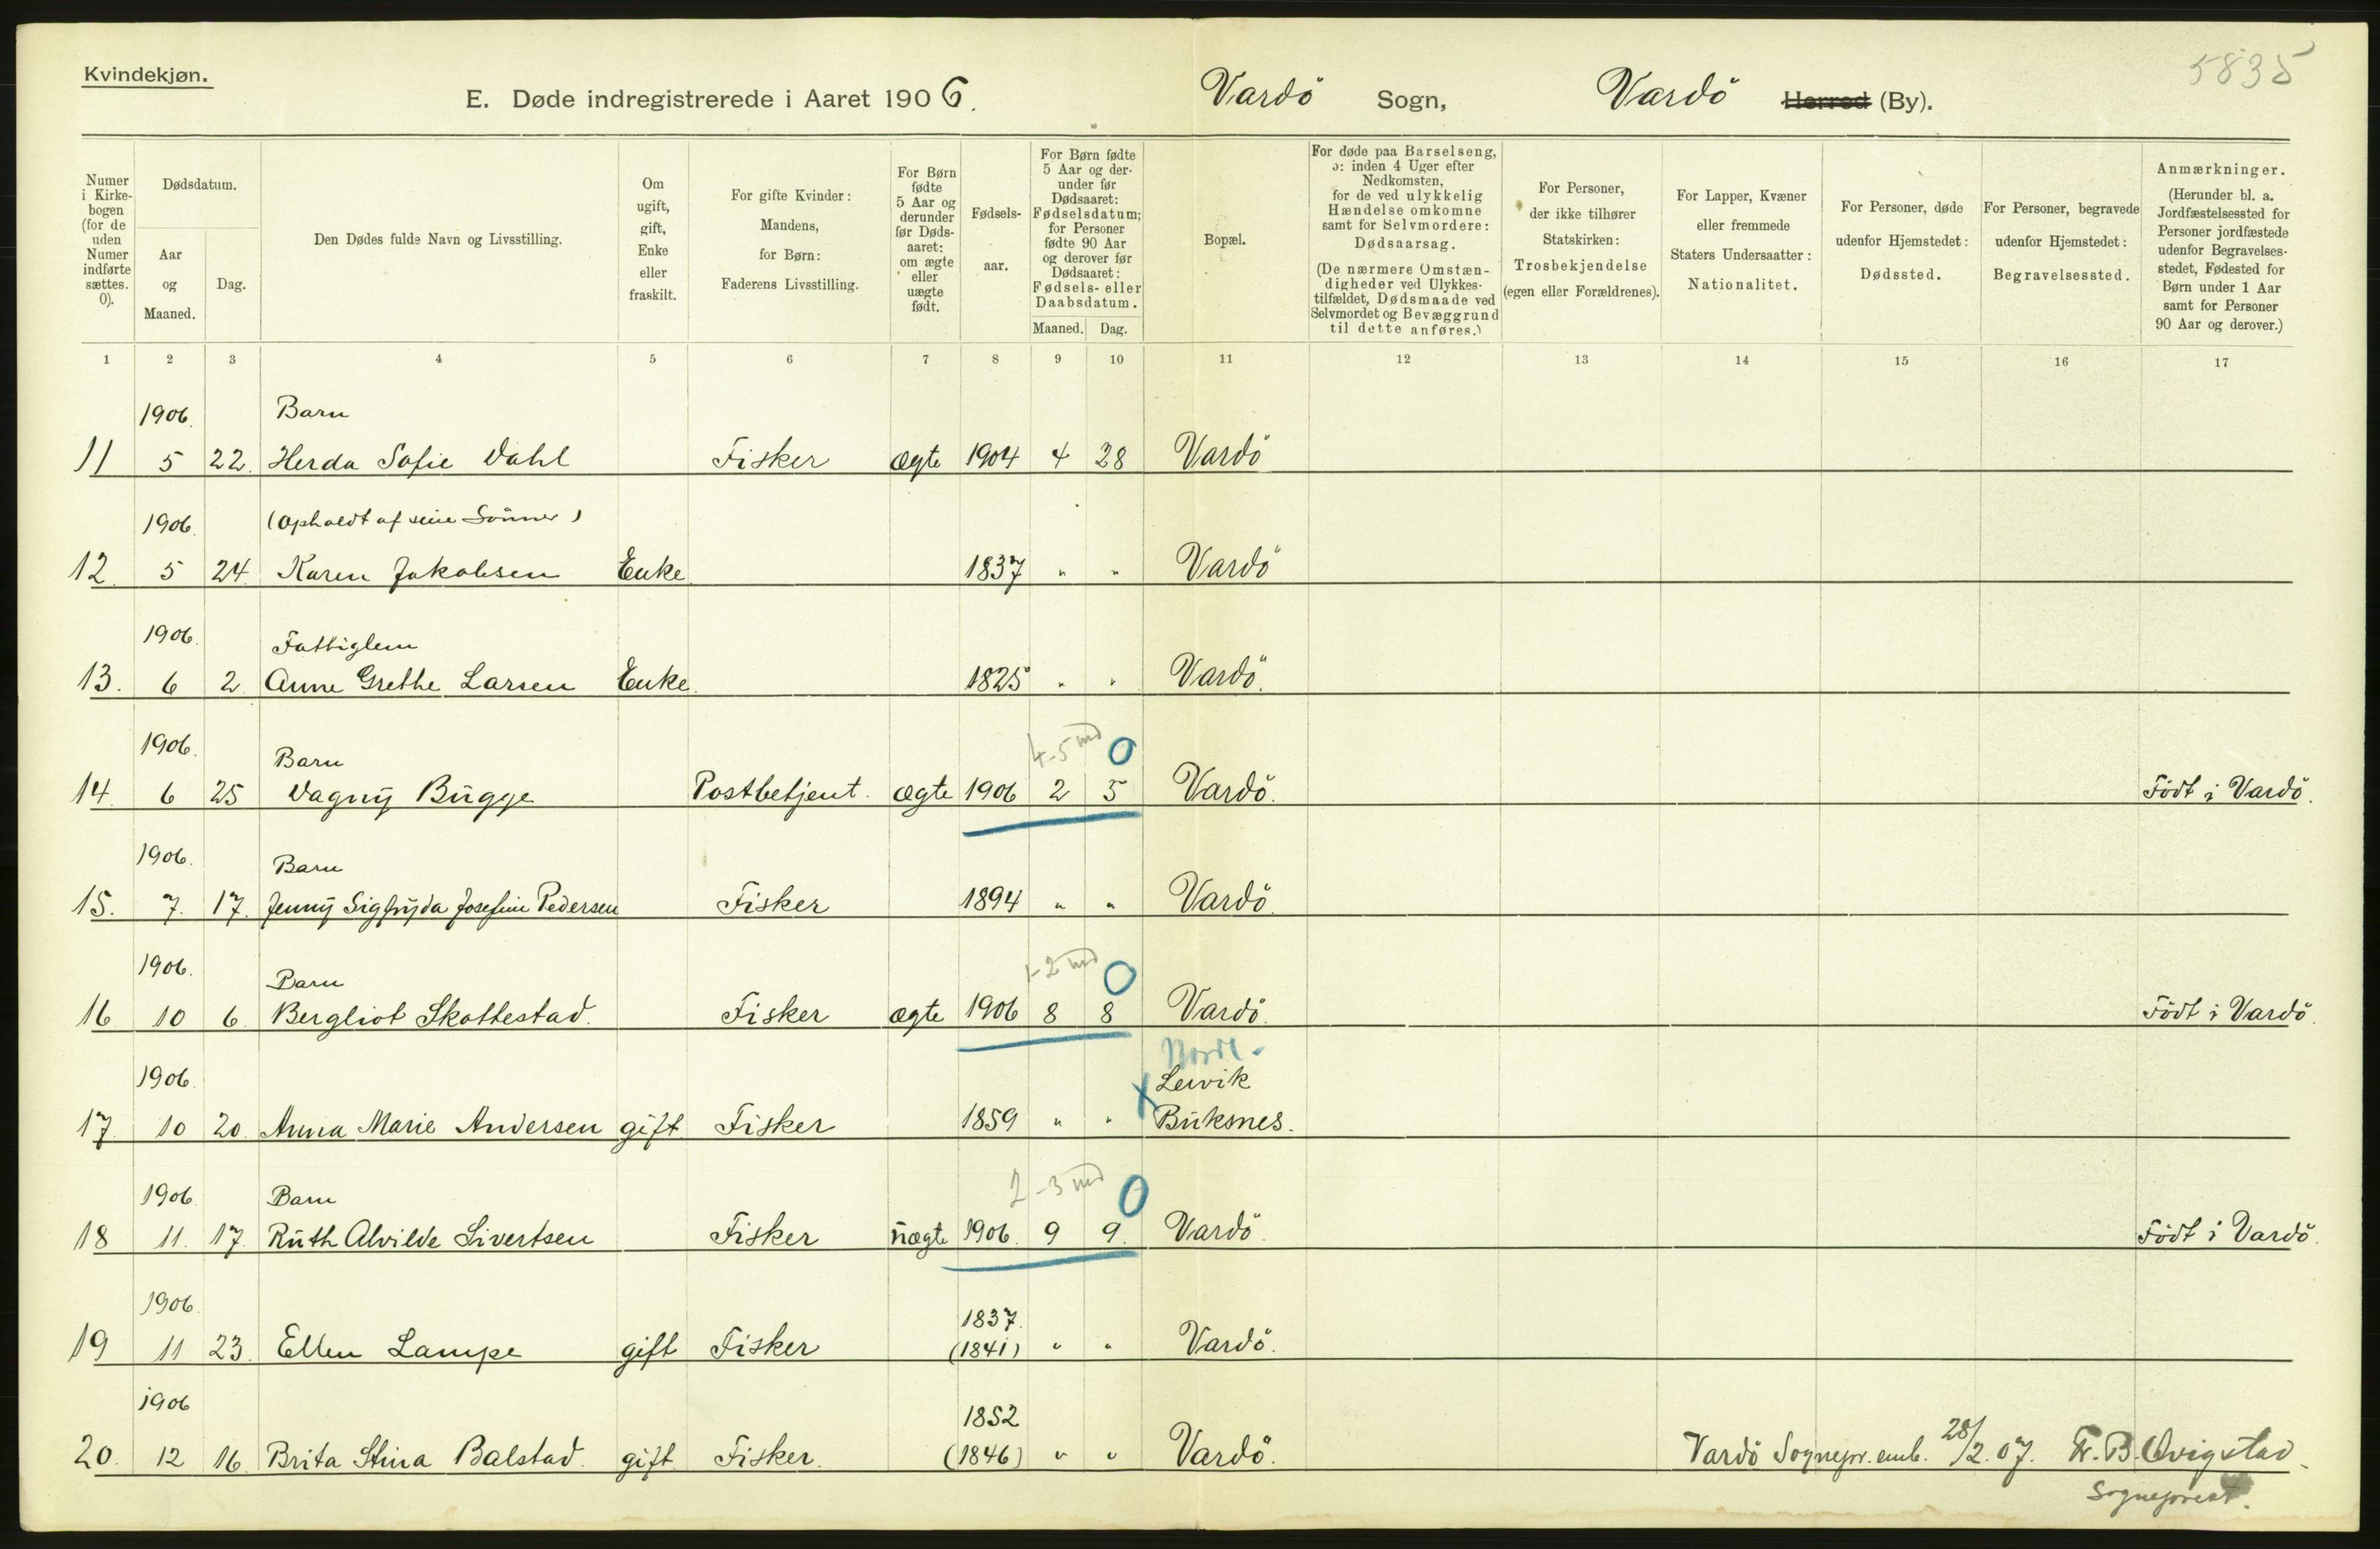 5835
Kvindekjøn.
E. Døde indregistrerede i Aaret 1906.
Vardö Sogn, Vardö Herred (By).
Numer i Kirkebogen (for de uden Numer indførte sættes. 0).
Dødsdatum.
Aar og Maaned.
Dag.
Den Dødes fulde Navn og Livsstilling.
Om ugift, gift, Enke eller fraskilt.
For gifte Kvinder: Mandens, for Børn: Faderens Livsstilling.
For Børn fødte 5 Aar og derunder før Dødsaaret: om ægte eller uægte født.
Fødselsaar.
For Børn fødte 5 Aar og derunder før Dødsaaret: Fødselsdatum; for Personer fødte 90 Aar og derover før Dødsaaret: Fødsels- eller Daabsdatum.
Maaned. Dag.
Bopæl.
For døde paa Barselseng, ɔ: inden 4 Uger efter Nedkomsten, for de ved ulykkelig Hændelse omkomne samt for Selvmordere: Dødsaarsag.
(De nærmere Omstændigheder ved Ulykkestilfældet, Dødsmaade ved Selvmordet og Bevæggrund til dette anføres.)
For Personer, der ikke tilhører Statskirken: Trosbekjendelse (egen eller Forældrenes).
For Lapper, Kvæner eller fremmede Staters Undersaatter: Nationalitet.
For Personer, døde udenfor Hjemstedet: Dødssted.
For Personer, begravede udenfor Hjemstedet: Begravelsessted.
Anmærkninger.
(Herunder bl. a. Jordfæstelsessted for Personer jordfæstede udenfor Begravelsesstedet, Fødested for Børn under 1 Aar samt for Personer 90 Aar og derover.)
1 2 3 4 5 6 7 8 9 10 11 12 13 14 15 16 17
1906. Barn
11 5 22. Herda Sofie Dahl Fisker ægte 1904 4 28 Vardö
1906. (Opholdt af sine Sönner)
12. 5 24 Karen Jakobsen Enke 1837 " " Vardö
1906. Fattiglem
13. 6 2 Anne Grethe Larsen Enke. 1825 " " Vardö.
1906. Barn 4-5 md 0
14 6 25 Dagny Bugge Postbetjent. ægte 1906 2 5 Vardö. Födt i Vardö.
1906. Barn
15. 7. 17. Jenny Sigfryda Josefine Pedersen Fisker 1894 " " Vardö.
1906. Barn 1-2 md 0
16 10 6 Bergliot Skottestad. Fisker ægte 1906 8 8 Vardö. Födt i Vardö.
Nordl.
1906. x Lervik
17. 10 20. Anna Marie Andersen gift. Fisker 1859 " " Buksnes.
1906. Barn 2-3 md 0
18 11. 17. Ruth Alvilde Sivertsen Fisker uægte 1906. 9 9. Vardö. Födt i Vardö.
1906. 1837.
19 11 23. Ellen Lampe gift Fisker (1841) " " Vardö.
1906 1852
20. 12 16. Brita Stina Balstad. gift. Fisker. (1846) " " Vardö.
Vardö Sognepr. emb. 28/2.07. Fr. B. Qvigstad.
Sogneprest.